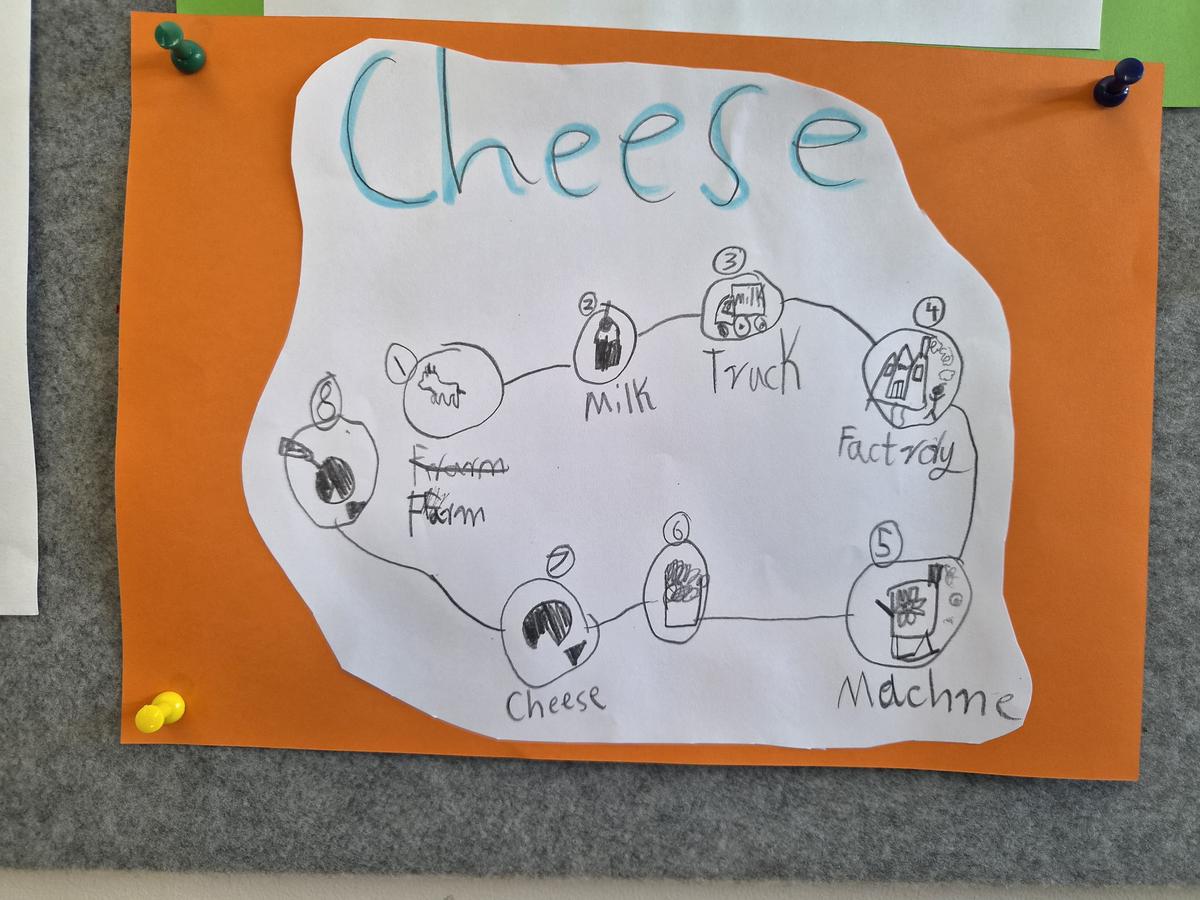 Cheese
1
Frarm
Farm
2
Milk
3
Milk
Truck
4
Factroly
5
Machne
6
7
Cheese
8